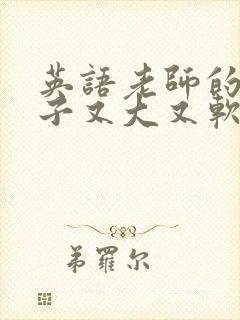 英語老師的
子又大又軟
弟羅尔